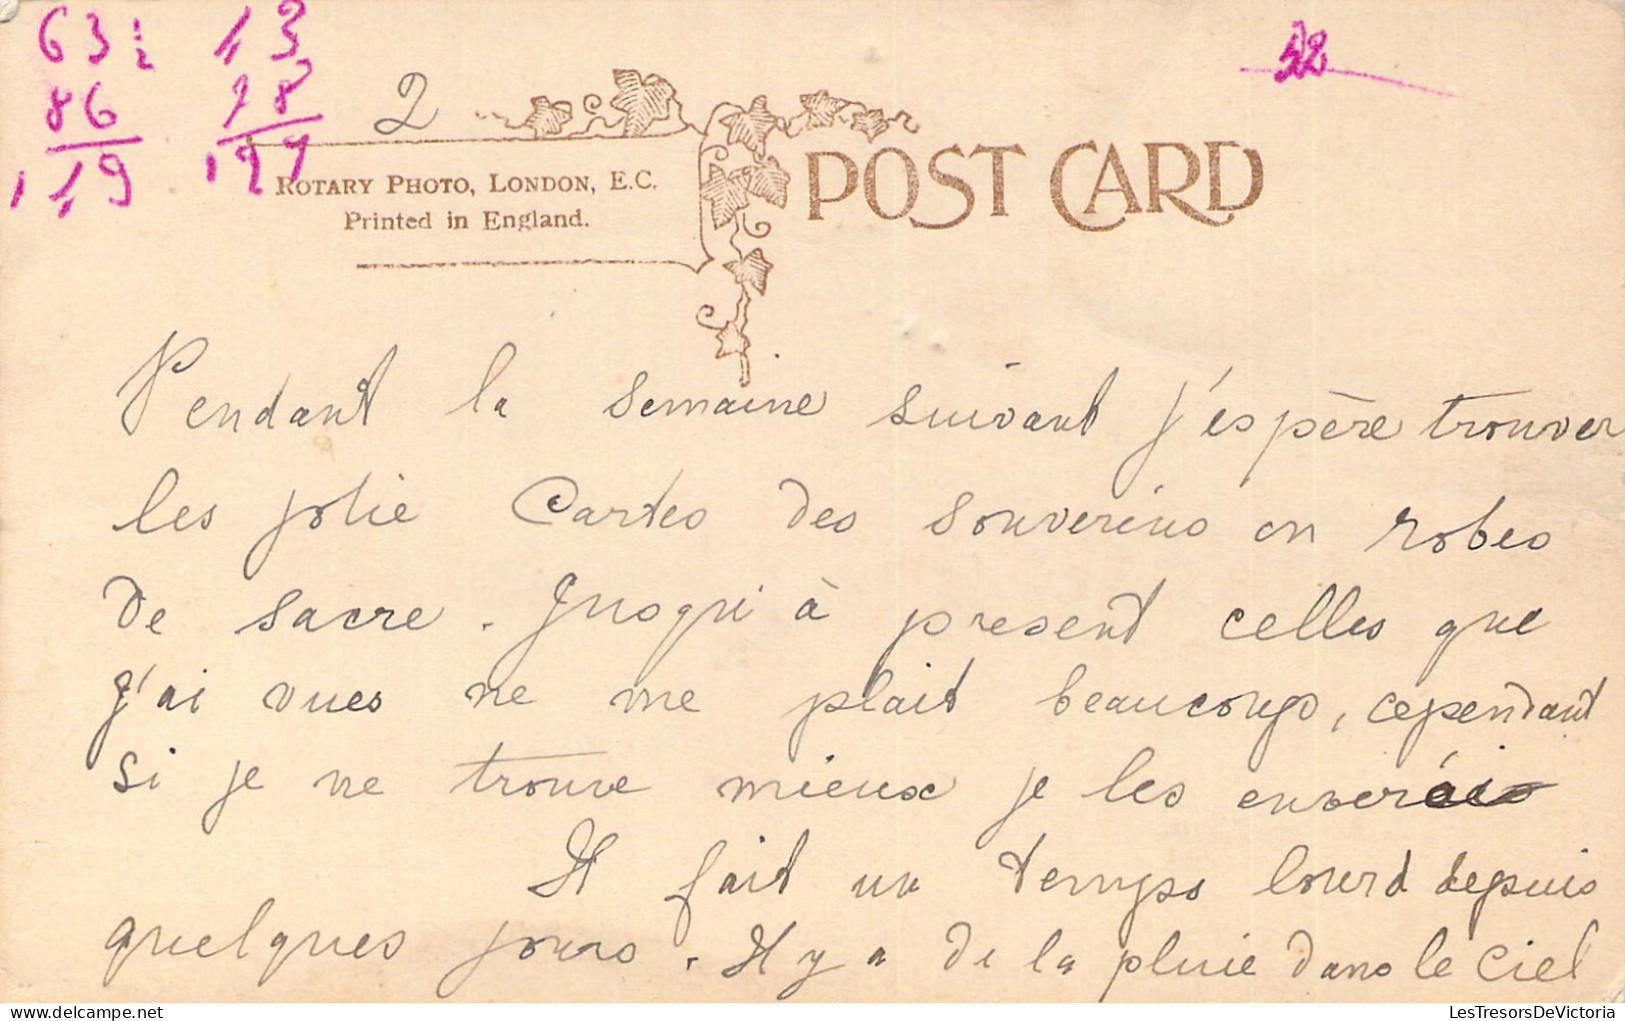 63 1/2 43 52
86 78
119 127
2
POST CARD
ROTARY PHOTO, LONDON, E.C.
Printed in England.
Pendant la semaine suivant j'espère trouver
les jolie Cartes des souverins en robes
de sacre. Jusqui à present celles que
j'ai vues ne me plait beaucoup, cependant
si je ne trouve mieux je les enverais
Il fait un temps lourd depuis
quelques jours. Il y a de la pluie dans le ciel
LesTresorsDeVictoria